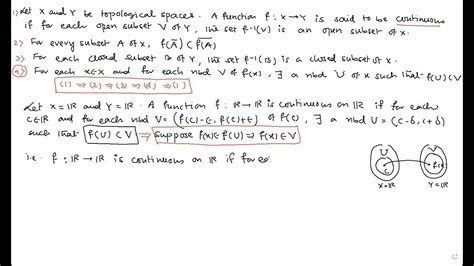 1) Let X and Y be topological spaces. A function f : X → Y is said to be continuous
if for each open subset V of Y, the set f⁻¹(V) is an open subset of X.
2) For every subset A of X, f(A̅) ⊂ \overline{f(A)}
3) For each closed subset B of Y, the set f⁻¹(B) is a closed subset of X.
4) For each x∈X and for each nbd V of f(x), ∃ a nbd U of x such that f(U) ⊂ V
(1) ⇒ (2) ⇒ (3) ⇒ (4) ⇒ (1)
Let X = ℝ and Y = ℝ. A function f : ℝ → ℝ is continuous on ℝ if for each
c∈ℝ and for each nbd V = (f(c)-ε, f(c)+ε) of f(c), ∃ a nbd U = (c-δ, c+δ)
such that f(U) ⊂ V ⇒ suppose f(x) ∈ f(U) ⇒ f(x) ∈ V
i.e. f : ℝ → ℝ is continuous on ℝ if for
U
c
f(c)
X = ℝ
Y = ℝ